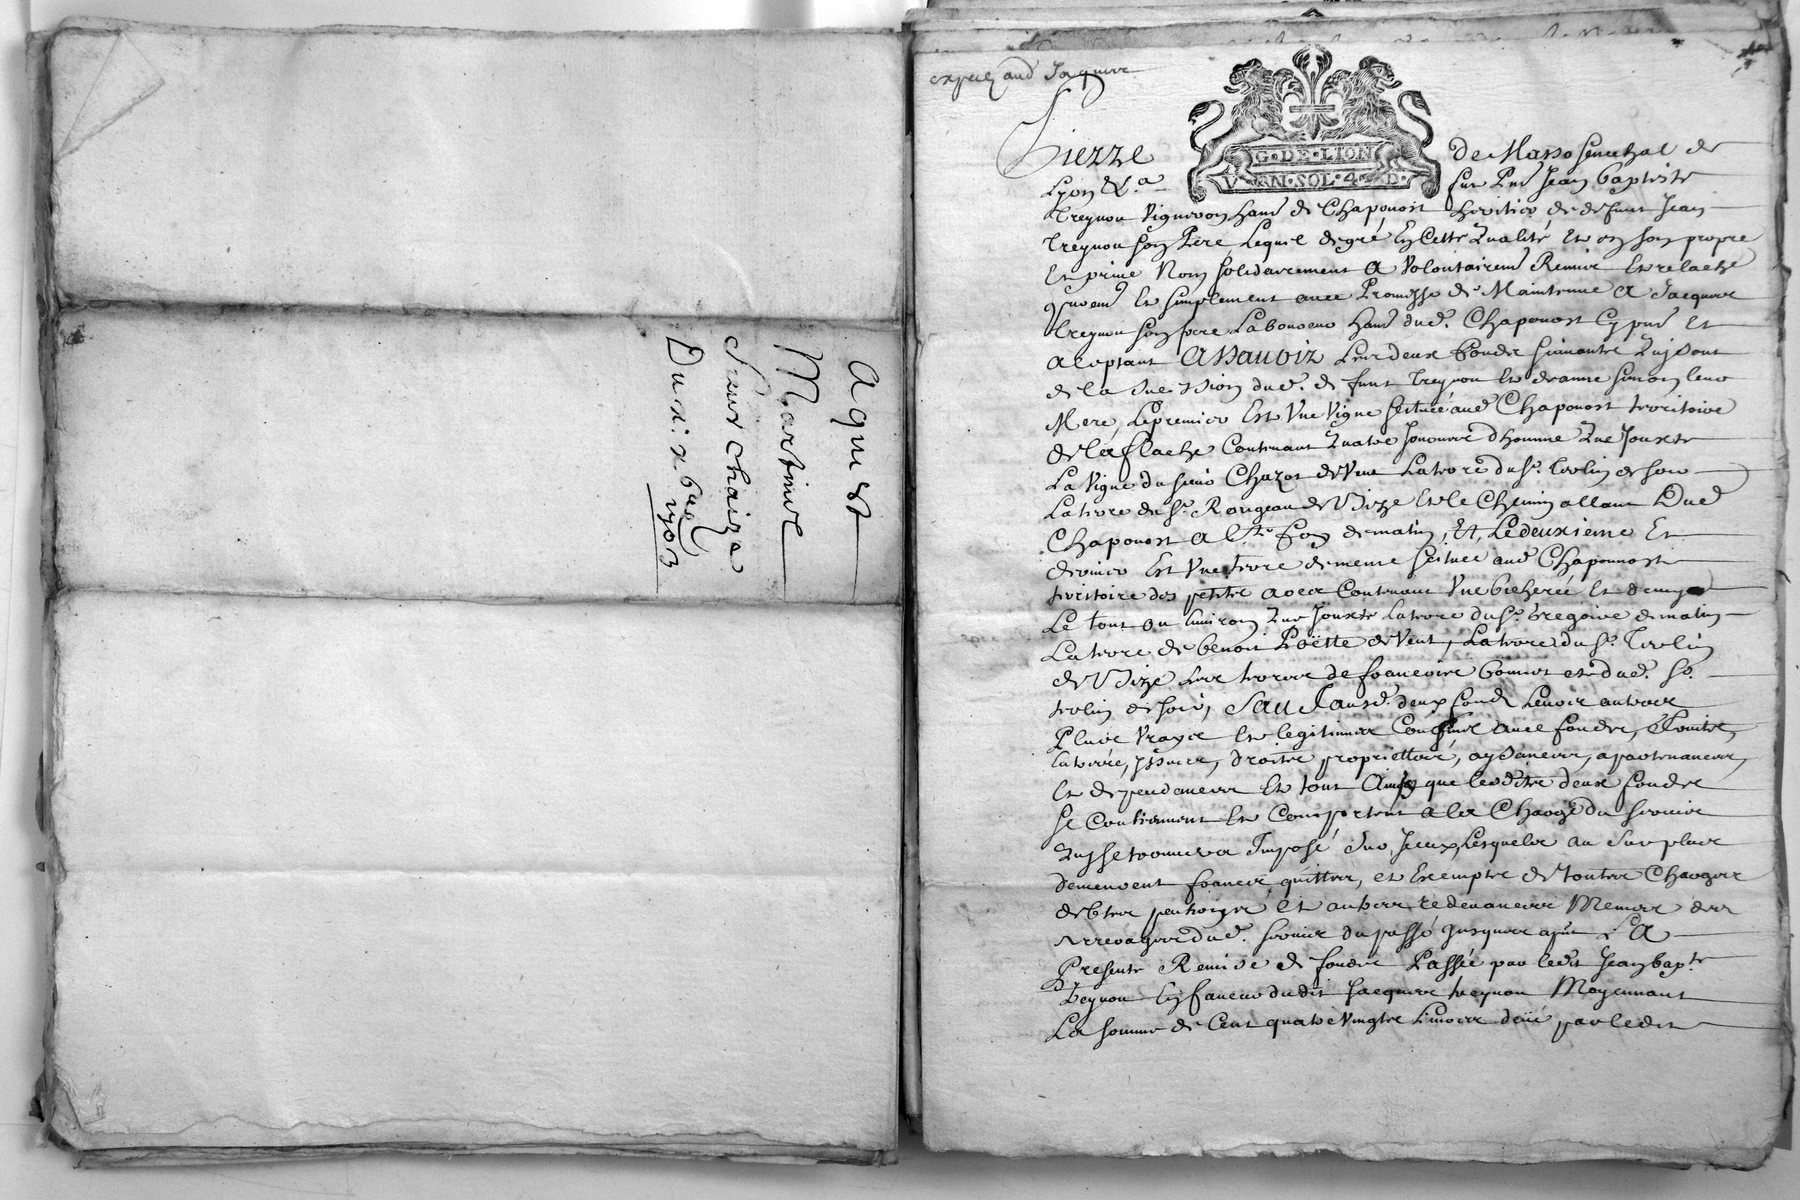 aquest
Martinel
Sieur Chaize
Du xi xbre
1703
expedié aud Jacques
G·DE·LION
V·EN·SOL·4·D·
Pierre de Masso senechal de
Lyon &a. fut Pnt Jean baptiste
treynou vigneron hant de Chaponost heritier de defunt Jean
treynou son Pere Lequel degré En Cette qualité et en son propre
Et privé Nom solidairement A volontairemt Remis Et relaché
puremt Et simplement avec Promesse de Maintenue A Jacques
treynou son frere Laboureur hant dud. Chaponost Cy pnt Et
aceptant Assavoir Les deux fonds suivants quy sont
de la succession dud. defunt treynou Et deanne simon leur
Mere, Le premier Est Une Vigne scituée aud Chaponost territoire
de la flache Contenant quatre Journées dhomme que Jouxte
La vigne du sieur Chazot de Vent La terre du Sr. trolin de soir
La terre du Sr. Rougeau de Bize Et le Chemin allant Dud
Chaponost A Ste foy de matin, Et, Le deuxieme Et
dernier Est Une terre de meme scituée aud Chaponnost
territoire des petites Contenant Une bicherée Et demy
Le tout ou Environ que Jouxte La terre du Sr. Gregoire de matin
La terre de benoit Poëtte de Vent, La terre du Sr. trolin
de Bize Les terres de francoise bonnet et dud. Sr.
trolin de soir, Sauf ausd. deux fonds Leurs autres
Plus Vrays Et legitimes Confins avec fonds,
Entrée, yssues, droits proprietes, aysances, apartenances,
Et dependances Et tout Ainsy que lesdits deux fonds
se Contiennent Et Comportent a la Charge du service
quy se trouvera Imposé sur Iceux, Lesquels au surplus
demeurent francs quittes, et Exemptes de toutes Charges
debtes et autres redevances Memes des
arrerages dud. service du passé jusques a La
Presente Remise de fonds Passée par ledit Jean bapte
treynou En faveur dudit Jacques treynou Moyennant
La somme de Cent quatre Vingts Livres par ledit